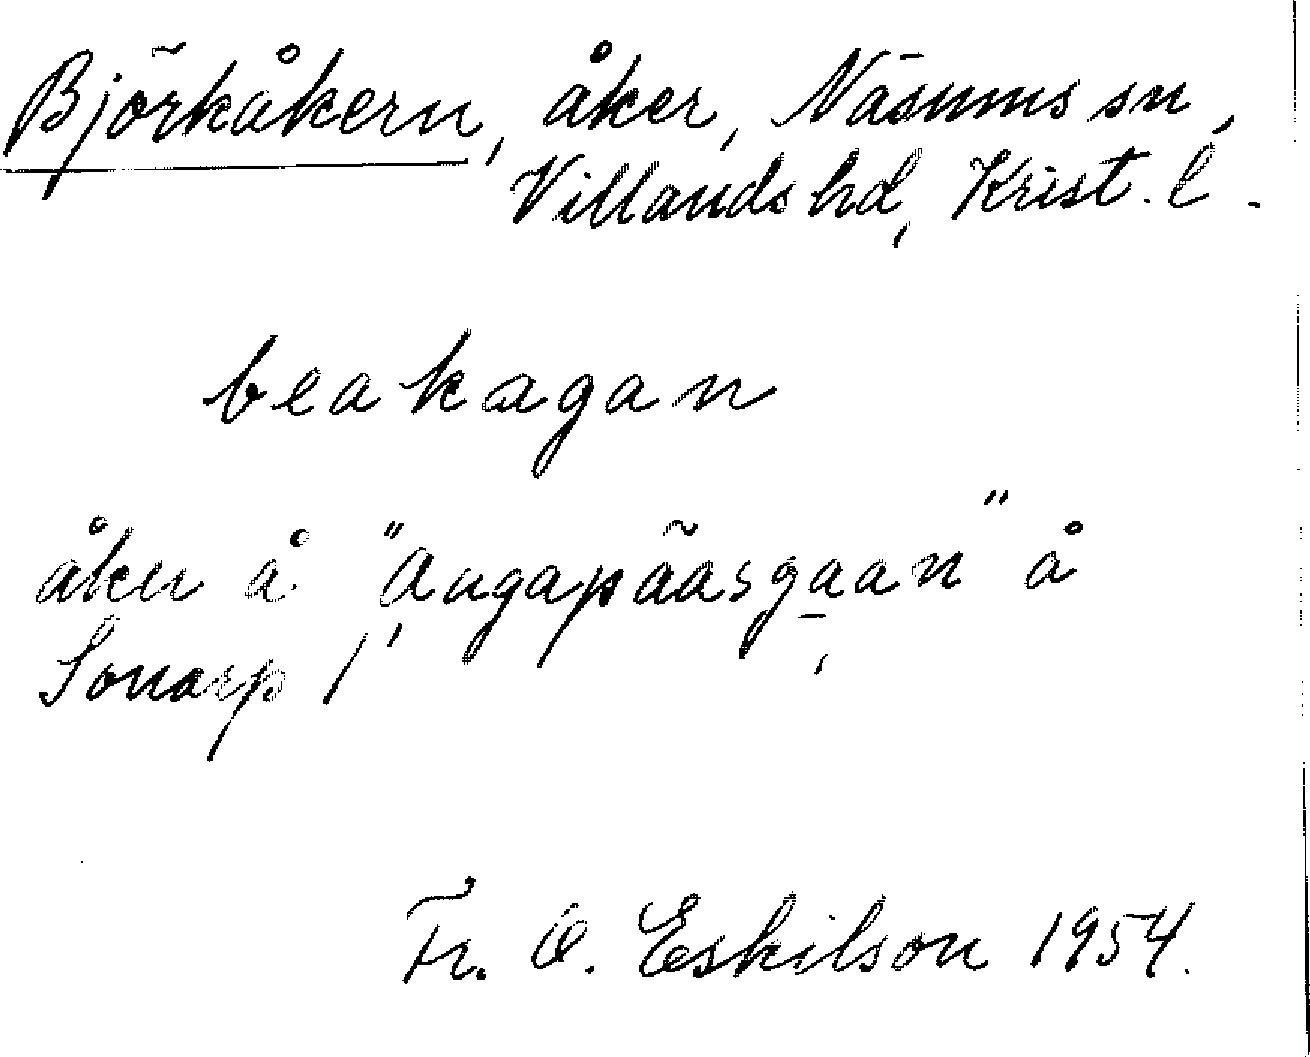 Björkåkern, åker, Näsums sn,
Villands hd, Krist. l.
beakagan
åker å "Augapäasgaan" å
Sonarp 1
Fr. O. Eskilson 1954.